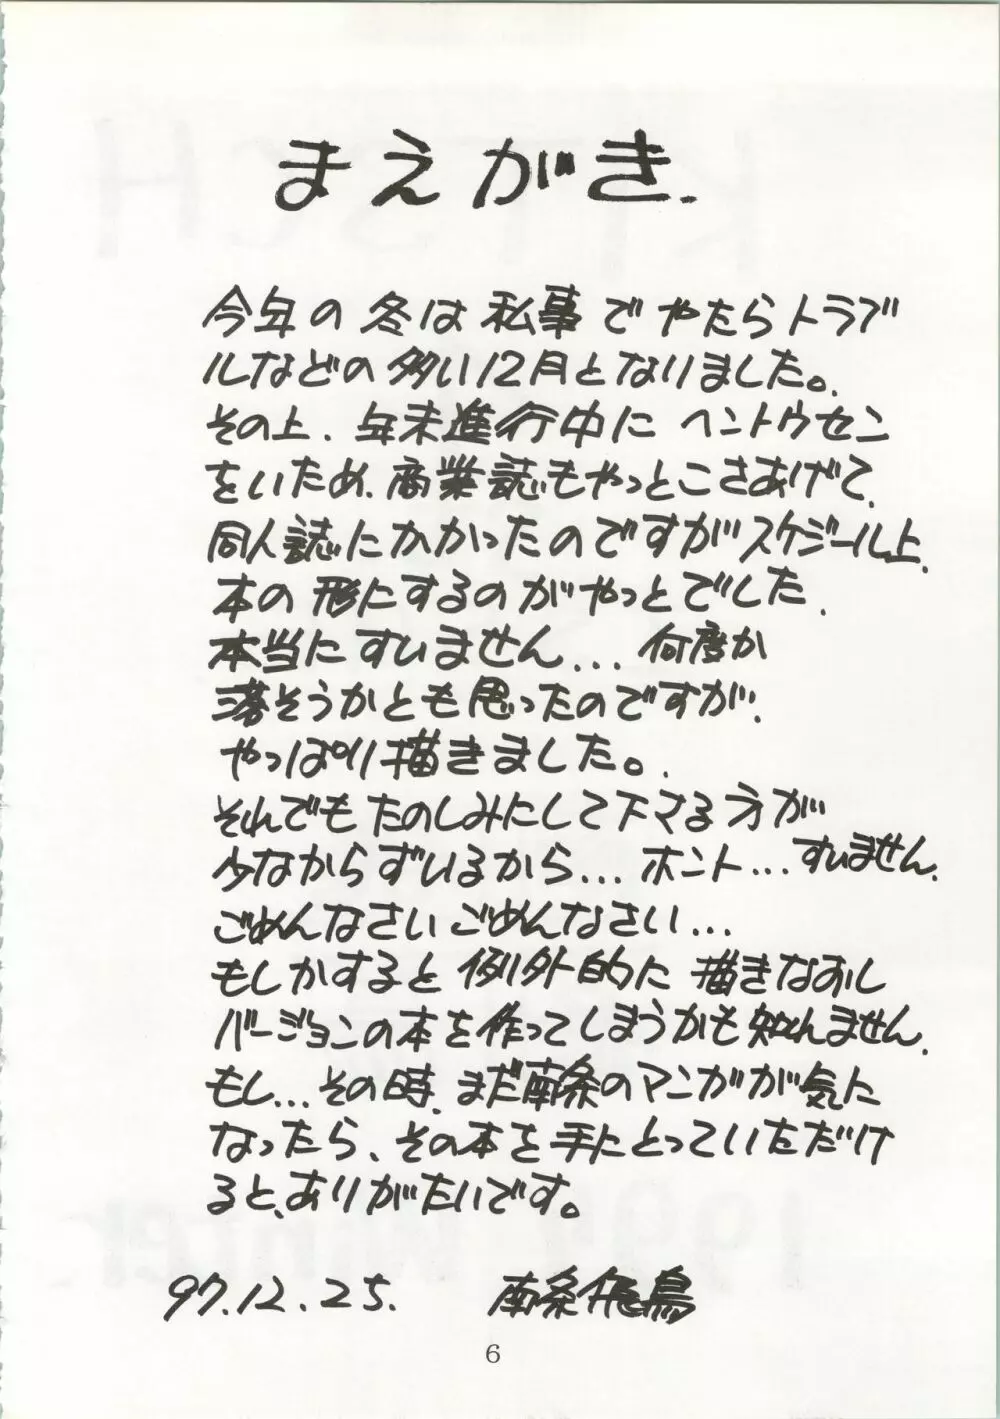 まえがき.
今年の冬は私事でやたらトラブ
ルなどの多い12月となりました。
その上、年末進行中にヘントウセン
をいため、商業誌もやっとこさあげて、
同人誌にかかったのですがスケジール上、
本の形にするのがやっとでした、
本当にすいません... 何度か
落そうかとも思ったのですが、
やっぱり描きました。.
それでもたのしみにして下さる方が
少なからずいるから...ホント...すいません.
ごめんなさいごめんなさい...
もしかすると例外的に描きなおし
バージョンの本を作ってしまうかも知れません.
もし...その時、まだ南条のマンガが気に
なったら、その本を手にとっていただけ
ると、ありがたいです。
97.12.25. 南条飛鳥
6